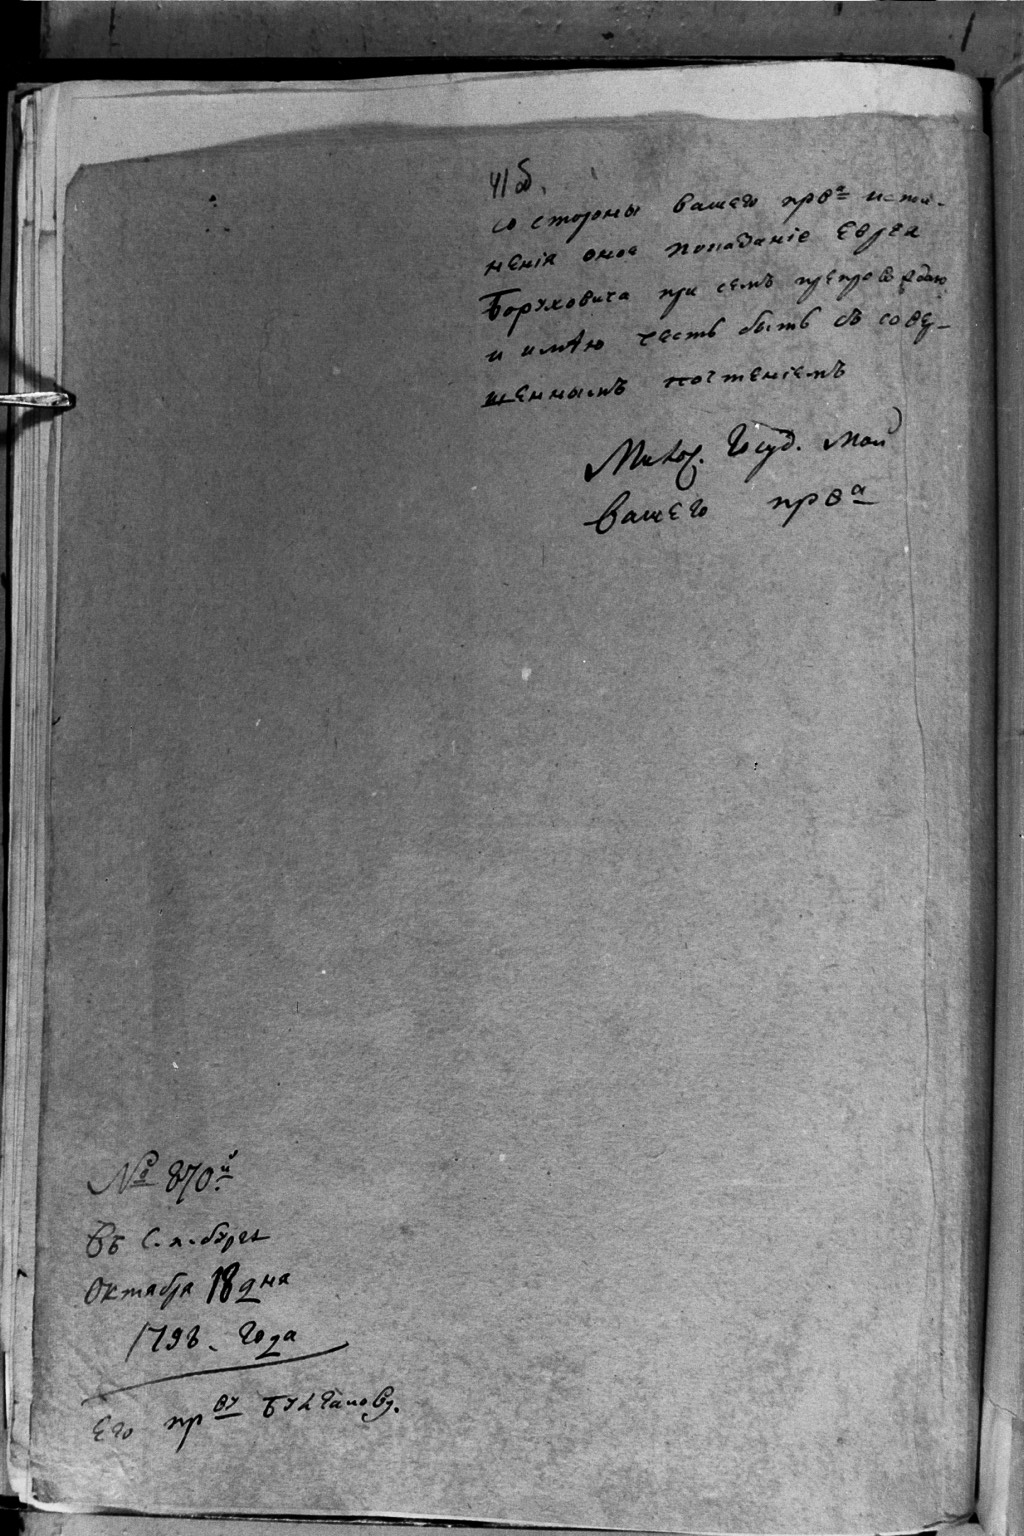 41об.
со стороны вашего прва испол-
ненія оное показаніе Еврея
Боруховича при семъ препровождаю
и имѣю честь быть съ совер-
шеннымъ почтеніемъ
Милос. Госуд. мой
вашего прва
№ 870й
Въ С.п.бурге
Октября 18 дня
1798. Года
Его прву Булгакову.